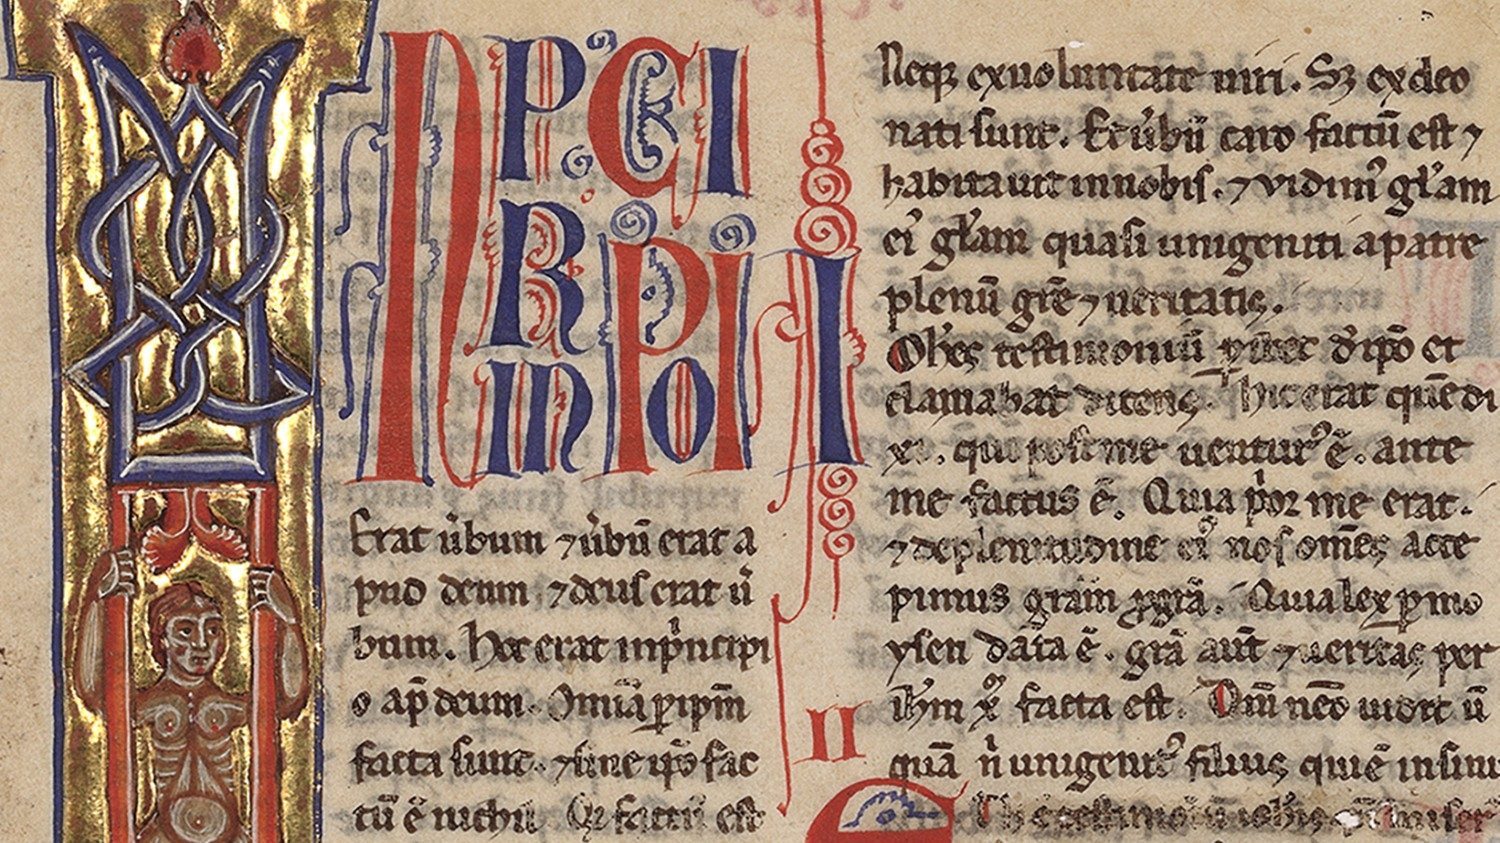 N P̲CI
R PI
IN PIO
Erat ūbum ⁊ ūbū erat a
pud deum ⁊ deus erat ū
bum. Hoc erat in pⁱncipi
o ap̄ deum. Omīa ꝑ ip̄m
facta sunt. ⁊ sine ip̄o fac
tū ē nichil. Qđ factū est
I
II
Neqꝫ ex uoluntate uiri. Sꝫ ex deo
nati sunt. Et ūbū caro factū est ⁊
habitauit in nobis. ⁊ vidimꝰ gl̄am
eiꝰ gl̄am quasi unigeniti a patre
plenū grē ⁊ ueritatis.
Iohēs testimoniū ꝑhibet đ ip̄o et
clamabat dicens. Hic erat quē di
xi. qui post me uenturꝰ ē. ante
me factus ē. Quia pⁱor me erat.
⁊ de plenitudine eiꝰ nos om̄es acce
pimus grām ꝓ grā. Quia lex ꝑ mo
ysen data ē. grā aūt ⁊ ueritas per
ih̄m xp̄m facta est. Dm̄ nēo uidit ū
quā nⁱ unigenitꝰ filius qui ē in sinu